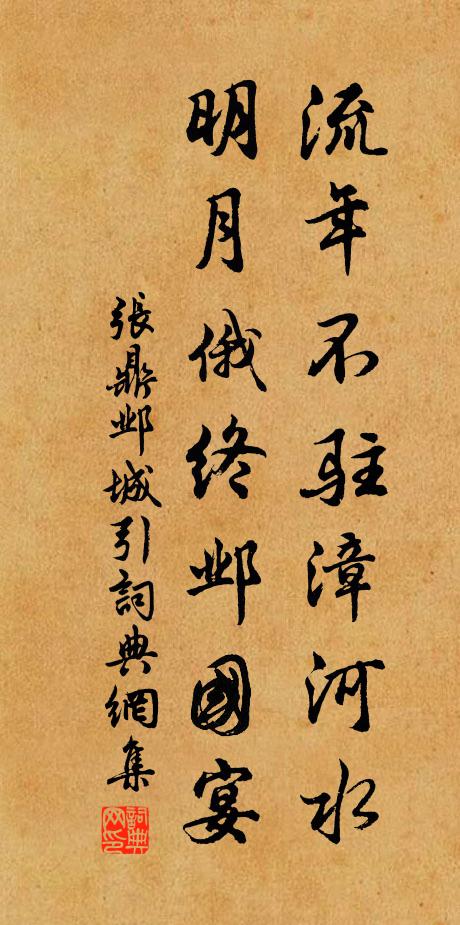 流年不駐漳河水
明月俄終鄴國宴
張鼎鄴城引詞典網集
詞典網印